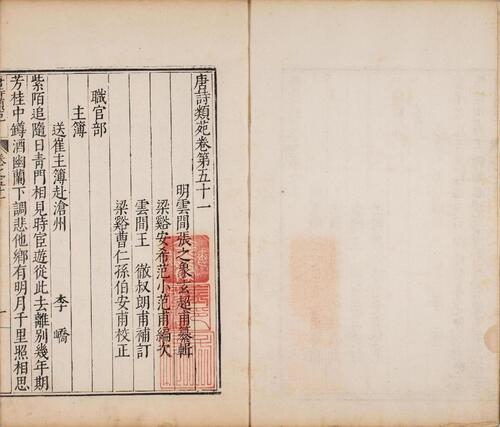 唐詩類苑卷第五十一
明雲間張之象玄超甫纂輯
梁谿安希范小范甫編次
雲間王徹叔朗甫補訂
梁谿曹仁孫伯安甫校正
職官部
主簿
送崔主簿赴滄州 李嶠
紫陌追隨日青門相見時宦遊從此去離別幾年期
芳桂中罇酒幽蘭下調悲他鄉有明月千里照相思